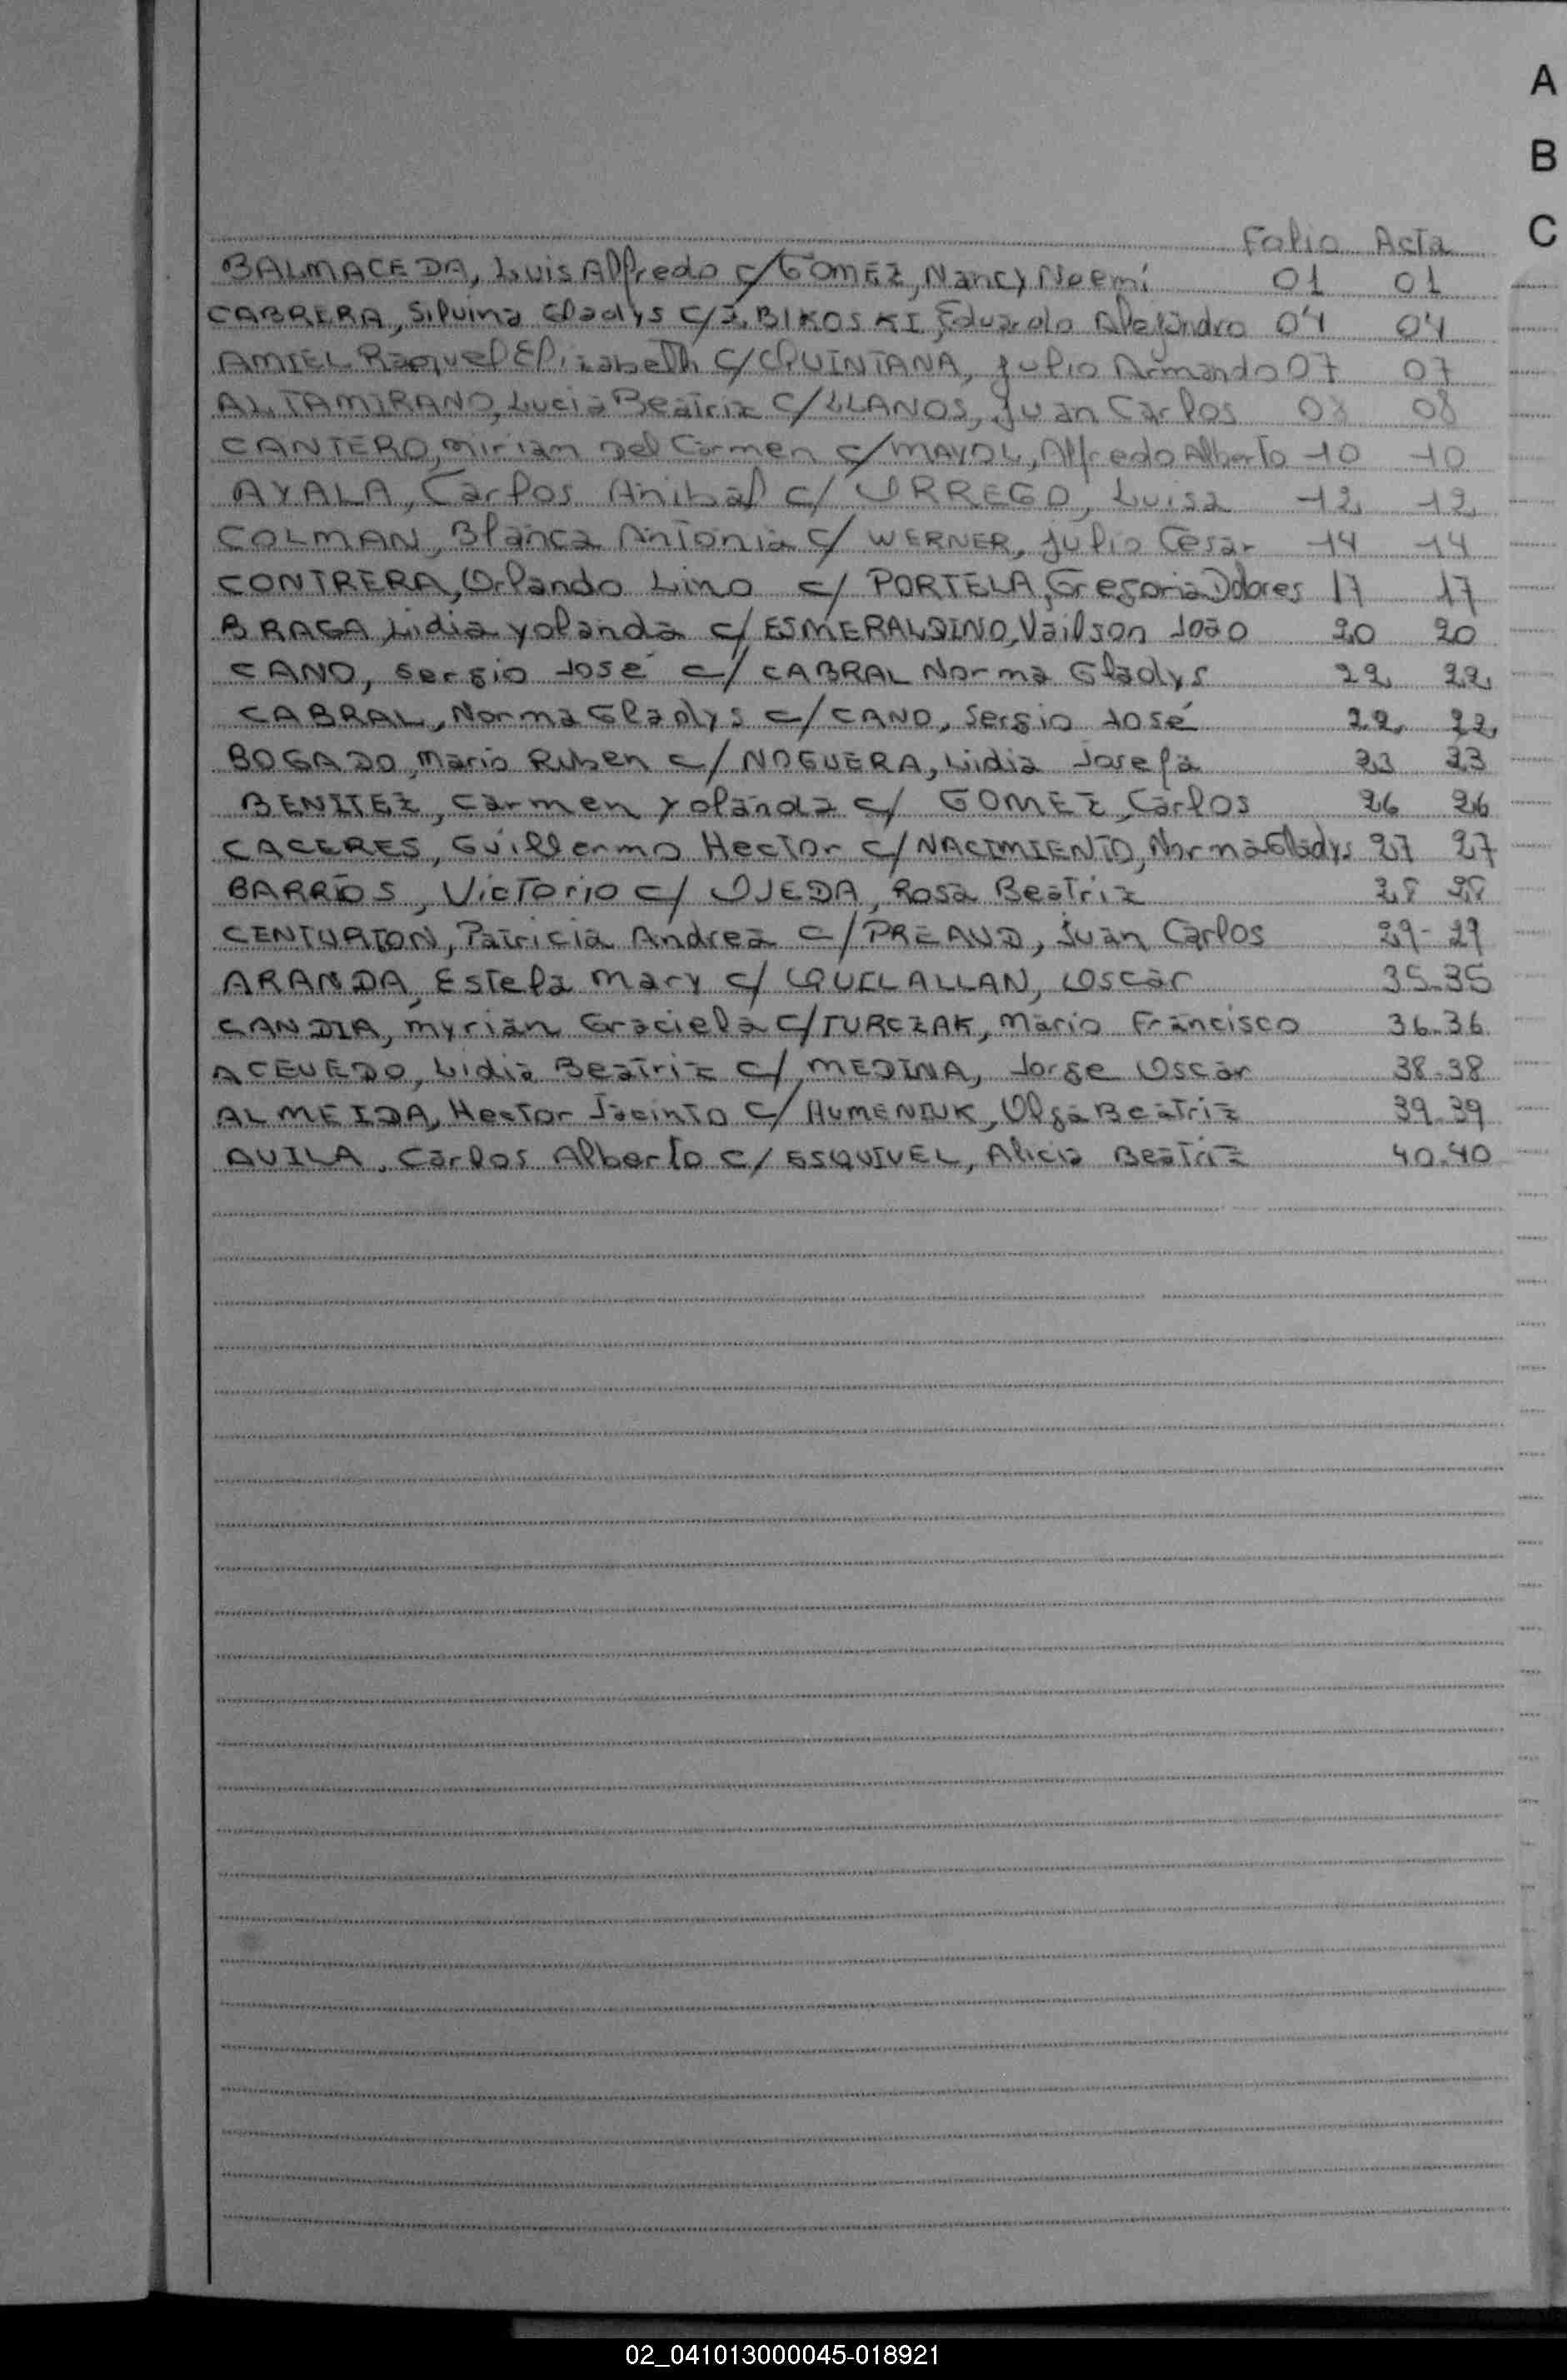 A
B
C
Folio Acta
BALMACEDA, Luis Alfredo c/ GOMEZ, Nancy Noemí 01 01
CABRERA, Silvina Gladys c/ ZBIKOSKI, Eduardo Alejandro 04 04
AMIEL Raquel Elizabeth c/ QUINTANA, Julio Armando 07 07
ALTAMIRANO, Lucia Beatriz c/ LLANOS, Juan Carlos 08 08
CANTERO, Mirian Del Carmen c/ MAYOL, Alfredo Alberto 10 10
AYALA, Carlos Anibal c/ URREGO, Luisa 12 12
COLMAN, Blanca Antonia c/ WERNER, Julio Cesar 14 14
CONTRERA, Orlando Lino c/ PORTELA, Gregoria Dolores 17 17
BRAGA, Lidia Yolanda c/ ESMERALDINO, Vailson João 20 20
CANO, Sergio José c/ CABRAL Norma Gladys 22 22
CABRAL, Norma Gladys c/ CANO, Sergio José 22 22
BOGADO, Mario Ruben c/ NOGUERA, Lidia Josefa 23 23
BENITEZ, Carmen Yolanda c/ GOMEZ, Carlos 26 26
CACERES, Guillermo Hector c/ NACIMIENTO, Norma Gladys 27 27
BARRIOS, Victorio c/ OJEDA, Rosa Beatriz 28 28
CENTURION, Patricia Andrea c/ PREAUD, Juan Carlos 29-29
ARANDA, Estela Mary c/ QUELLALLAN, Oscar 35-35
CANDIA, Myrian Graciela c/ TURCZAK, Mario Francisco 36-36
ACEVEDO, Lidia Beatriz c/ MEDINA, Jorge Oscar 38-38
ALMEIDA, Hector Jacinto c/ HUMENIUK, Olga Beatriz 39-39
AVILA, Carlos Alberto c/ ESQUIVEL, Alicia Beatriz 40-40
02_041013000045-018921